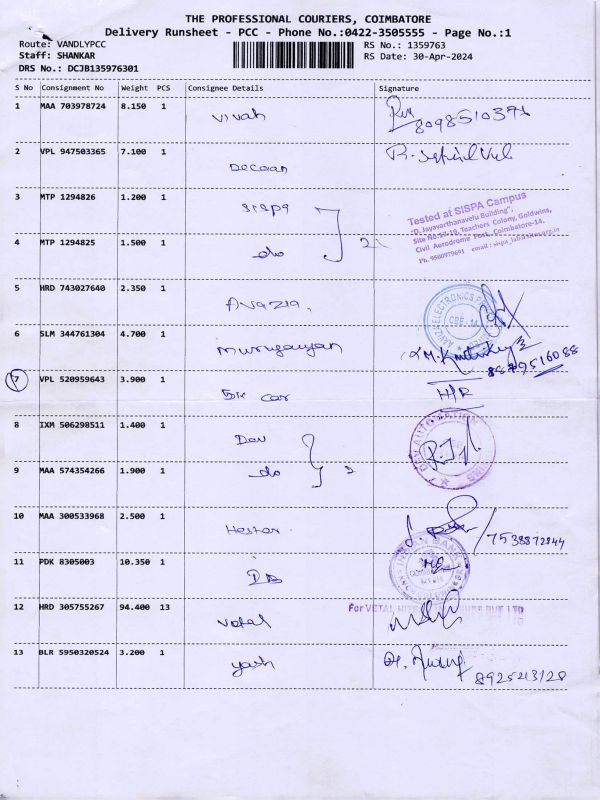 THE PROFESSIONAL COURIERS, COIMBATORE
Delivery Runsheet - PCC - Phone No.:0422-3505555 - Page No.:1
Route: VANDLYPCC RS No.: 1359763
Staff: SHANKAR RS Date: 30-Apr-2024
DRS No.: DCJB135976301
S No Consignment No Weight PCS Consignee Details Signature
1 MAA 703978724 8.150 1 Vivah
8098510371
2 VPL 947503365 7.100 1 Deccan R.
3 MTP 1294826 1.200 1 sispa
Tested at SISPA Campus
"D.Jayavarthanavelu Building",
Site No:27-19, Teachers Colony, Goldwins,
Civil Aerodrome Post, Coimbatore-14.
Ph. 9500979691 email :
4 MTP 1294825 1.500 1 do 2
5 HRD 743027640 2.350 1
CBE-14
6 SLM 344761304 4.700 1 murugaiyan
8879516088
7 VPL 520959643 3.900 1 car H/R
8 IXM 506298511 1.400 1 Dev
DEV AUTOMATION
9 MAA 574354266 1.900 1 do 2
10 MAA 300533968 2.500 1
7538872844
11 PDK 8305003 10.350 1
INDIAN BANK
12 HRD 305755267 94.400 13 Vetal
For VETAL
13 BLR 5950320524 3.200 1 yash